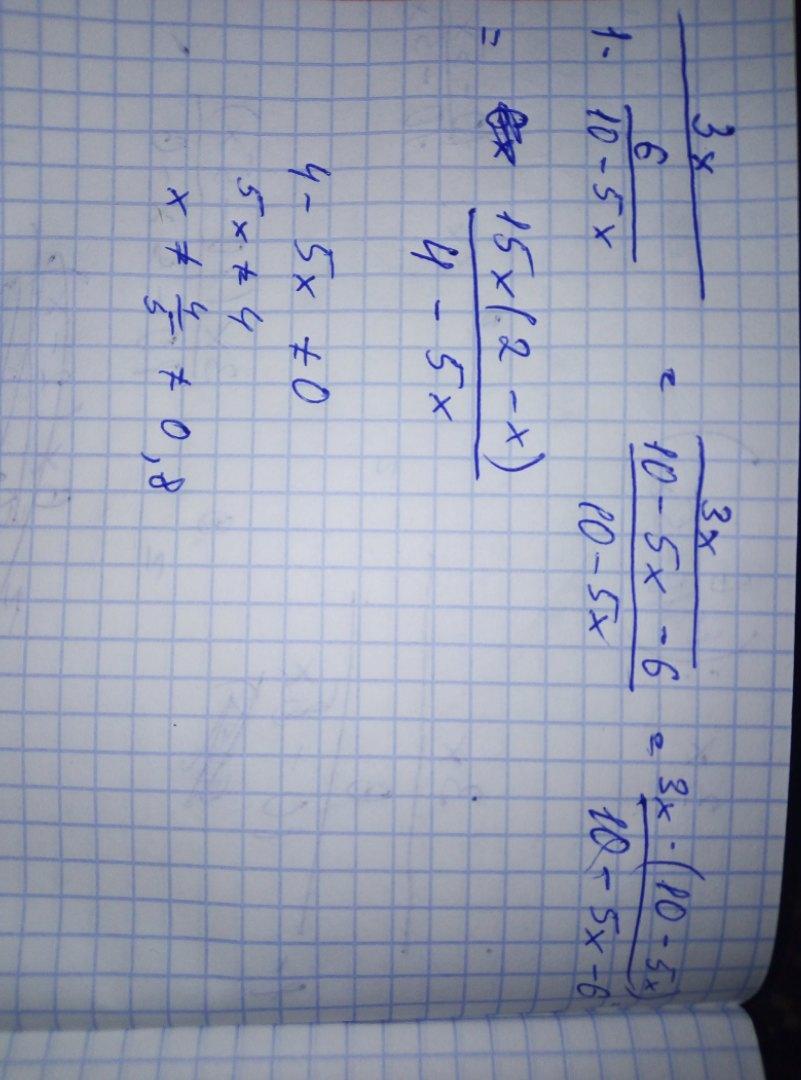 3x / (1 - 6 / (10 - 5x)) = 3x / ((10 - 5x - 6) / (10 - 5x)) = 3x · (10 - 5x) / (10 - 5x - 6)
= 15x(2 - x) / (4 - 5x)
4 - 5x ≠ 0
5x ≠ 4
x ≠ 4/5 ≠ 0,8